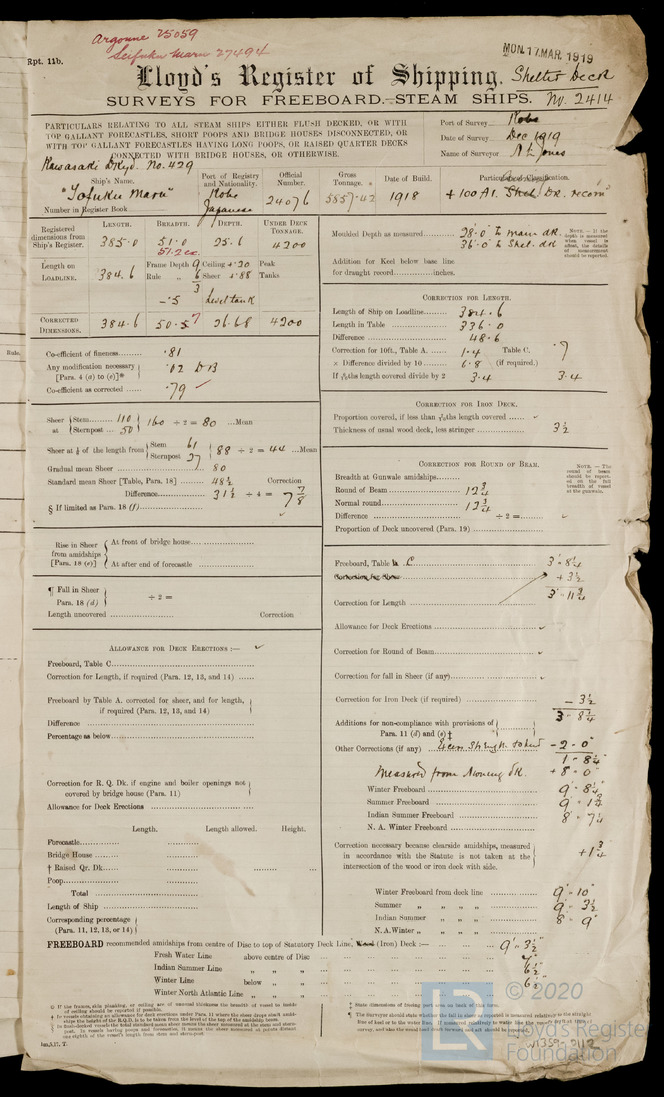 Argonne 25059
Seifuku Maru 27494
Rpt. 11b.
MON. 17 MAR. 1919
Lloyd's Register of Shipping.
Shelter Deck
SURVEYS FOR FREEBOARD.—STEAM SHIPS.
No. 2414
PARTICULARS RELATING TO ALL STEAM SHIPS EITHER FLUSH DECKED, OR WITH
TOP GALLANT FORECASTLES, SHORT POOPS AND BRIDGE HOUSES DISCONNECTED, OR
WITH TOP GALLANT FORECASTLES HAVING LONG POOPS, OR RAISED QUARTER DECKS
CONNECTED WITH BRIDGE HOUSES, OR OTHERWISE.
Port of Survey Kobe
Date of Survey Dec 1919
Name of Surveyor A L Jones
Kawasaki Dkyd. No. 429
Ship's Name. Port of Registry and Nationality. Official Number. Gross Tonnage. Date of Build. Particulars of Classification.
"Tofuku Maru" Kobe Japanese 24076 5857.42 1918 +100A1. Shel. Dk. recom
Number in Register Book
LENGTH. BREADTH. DEPTH. UNDER DECK TONNAGE.
Registered dimensions from Ship's Register. 385.0 51.0 25.6 4200
51.2
Length on LOADLINE. 384.6 Frame Depth 9 Ceiling +.20 Peak
Rule „ 6 Sheer +.88 Tanks
3
-.5 Level tank
CORRECTED DIMENSIONS. 384.6 50.57 26.68 4200
Co-efficient of fineness .81
Any modification necessary [Para. 4 (a) to (e)]* .02 DB
Co-efficient as corrected .79
Sheer at Stem 110 Sternpost 50 160 ÷ 2 = 80 ...Mean
Sheer at 1/8 of the length from Stem 61 Sternpost 27 88 ÷ 2 = 44 ...Mean
Gradual mean Sheer 80
Standard mean Sheer [Table, Para. 18] 48½ Correction
Difference 31½ ÷ 4 = 7 7/8
§ If limited as Para. 18 (f)
Rise in Sheer from amidships [Para. 18 (e)] At front of bridge house
At after end of forecastle
¶ Fall in Sheer Para. 18 (d) ÷ 2 =
Length uncovered Correction
ALLOWANCE FOR DECK ERECTIONS :—
Freeboard, Table C
Correction for Length, if required (Para. 12, 13, and 14)
Freeboard by Table A. corrected for sheer, and for length, if required (Para. 12, 13, and 14)
Difference
Percentage as below
Correction for R. Q. Dk. if engine and boiler openings not covered by bridge house (Para. 11)
Allowance for Deck Erections
Length. Length allowed. Height.
Forecastle
Bridge House
† Raised Qr. Dk.
Poop
Total
Length of Ship
Corresponding percentage (Para. 11, 12, 13, or 14)
Moulded Depth as measured 28.0 to main dk
36.0 to Shel. dk
NOTE.—If the depth is measured when vessel is afloat, the details of measurement should be reported.
Addition for Keel below base line
for draught record inches.
CORRECTION FOR LENGTH.
Length of Ship on Loadline 384.6
Length in Table 336.0
Difference 48.6
Correction for 10ft., Table A. 1.4 Table C. .7
× Difference divided by 10 6.8 (if required.)
If 6/10ths length covered divide by 2 3.4 3.4
CORRECTION FOR IRON DECK.
Proportion covered, if less than 7/10ths length covered
Thickness of usual wood deck, less stringer 3½
CORRECTION FOR ROUND OF BEAM.
Breadth at Gunwale amidships
Round of Beam 12¾
Normal round 12¾
Difference ÷ 2 =
Proportion of Deck uncovered (Para. 19)
NOTE.—The round of beam should be reported on the full breadth of vessel at the gunwale.
Freeboard, Table C 3'-8¼
Correction for Sheer +3½
3'-11¾
Correction for Length
Allowance for Deck Erections
Correction for Round of Beam
Correction for fall in Sheer (if any)
Correction for Iron Deck (if required) -3½
3-8¼
Additions for non-compliance with provisions of Para. 11 (d) and (e)‡
Other Corrections (if any) -2-0"
1-8¼
Measured from +8-0"
Winter Freeboard 9-8¼
Summer Freeboard 9-1¾
Indian Summer Freeboard 8-7¼
N. A. Winter Freeboard
Correction necessary because clearside amidships, measured in accordance with the Statute is not taken at the intersection of the wood or iron deck with side. +1¾
Winter Freeboard from deck line 9'-10"
Summer „ „ „ 9-3½
Indian Summer „ „ „ 8-9"
N.A. Winter „ „ „
FREEBOARD recommended amidships from centre of Disc to top of Statutory Deck Line, Wood (Iron) Deck :— 9'-3½"
Fresh Water Line above centre of Disc
Indian Summer Line „ „ 6½
Winter Line below „ 6½
Winter North Atlantic Line „ „
© 2020
Lloyd's Register
Foundation